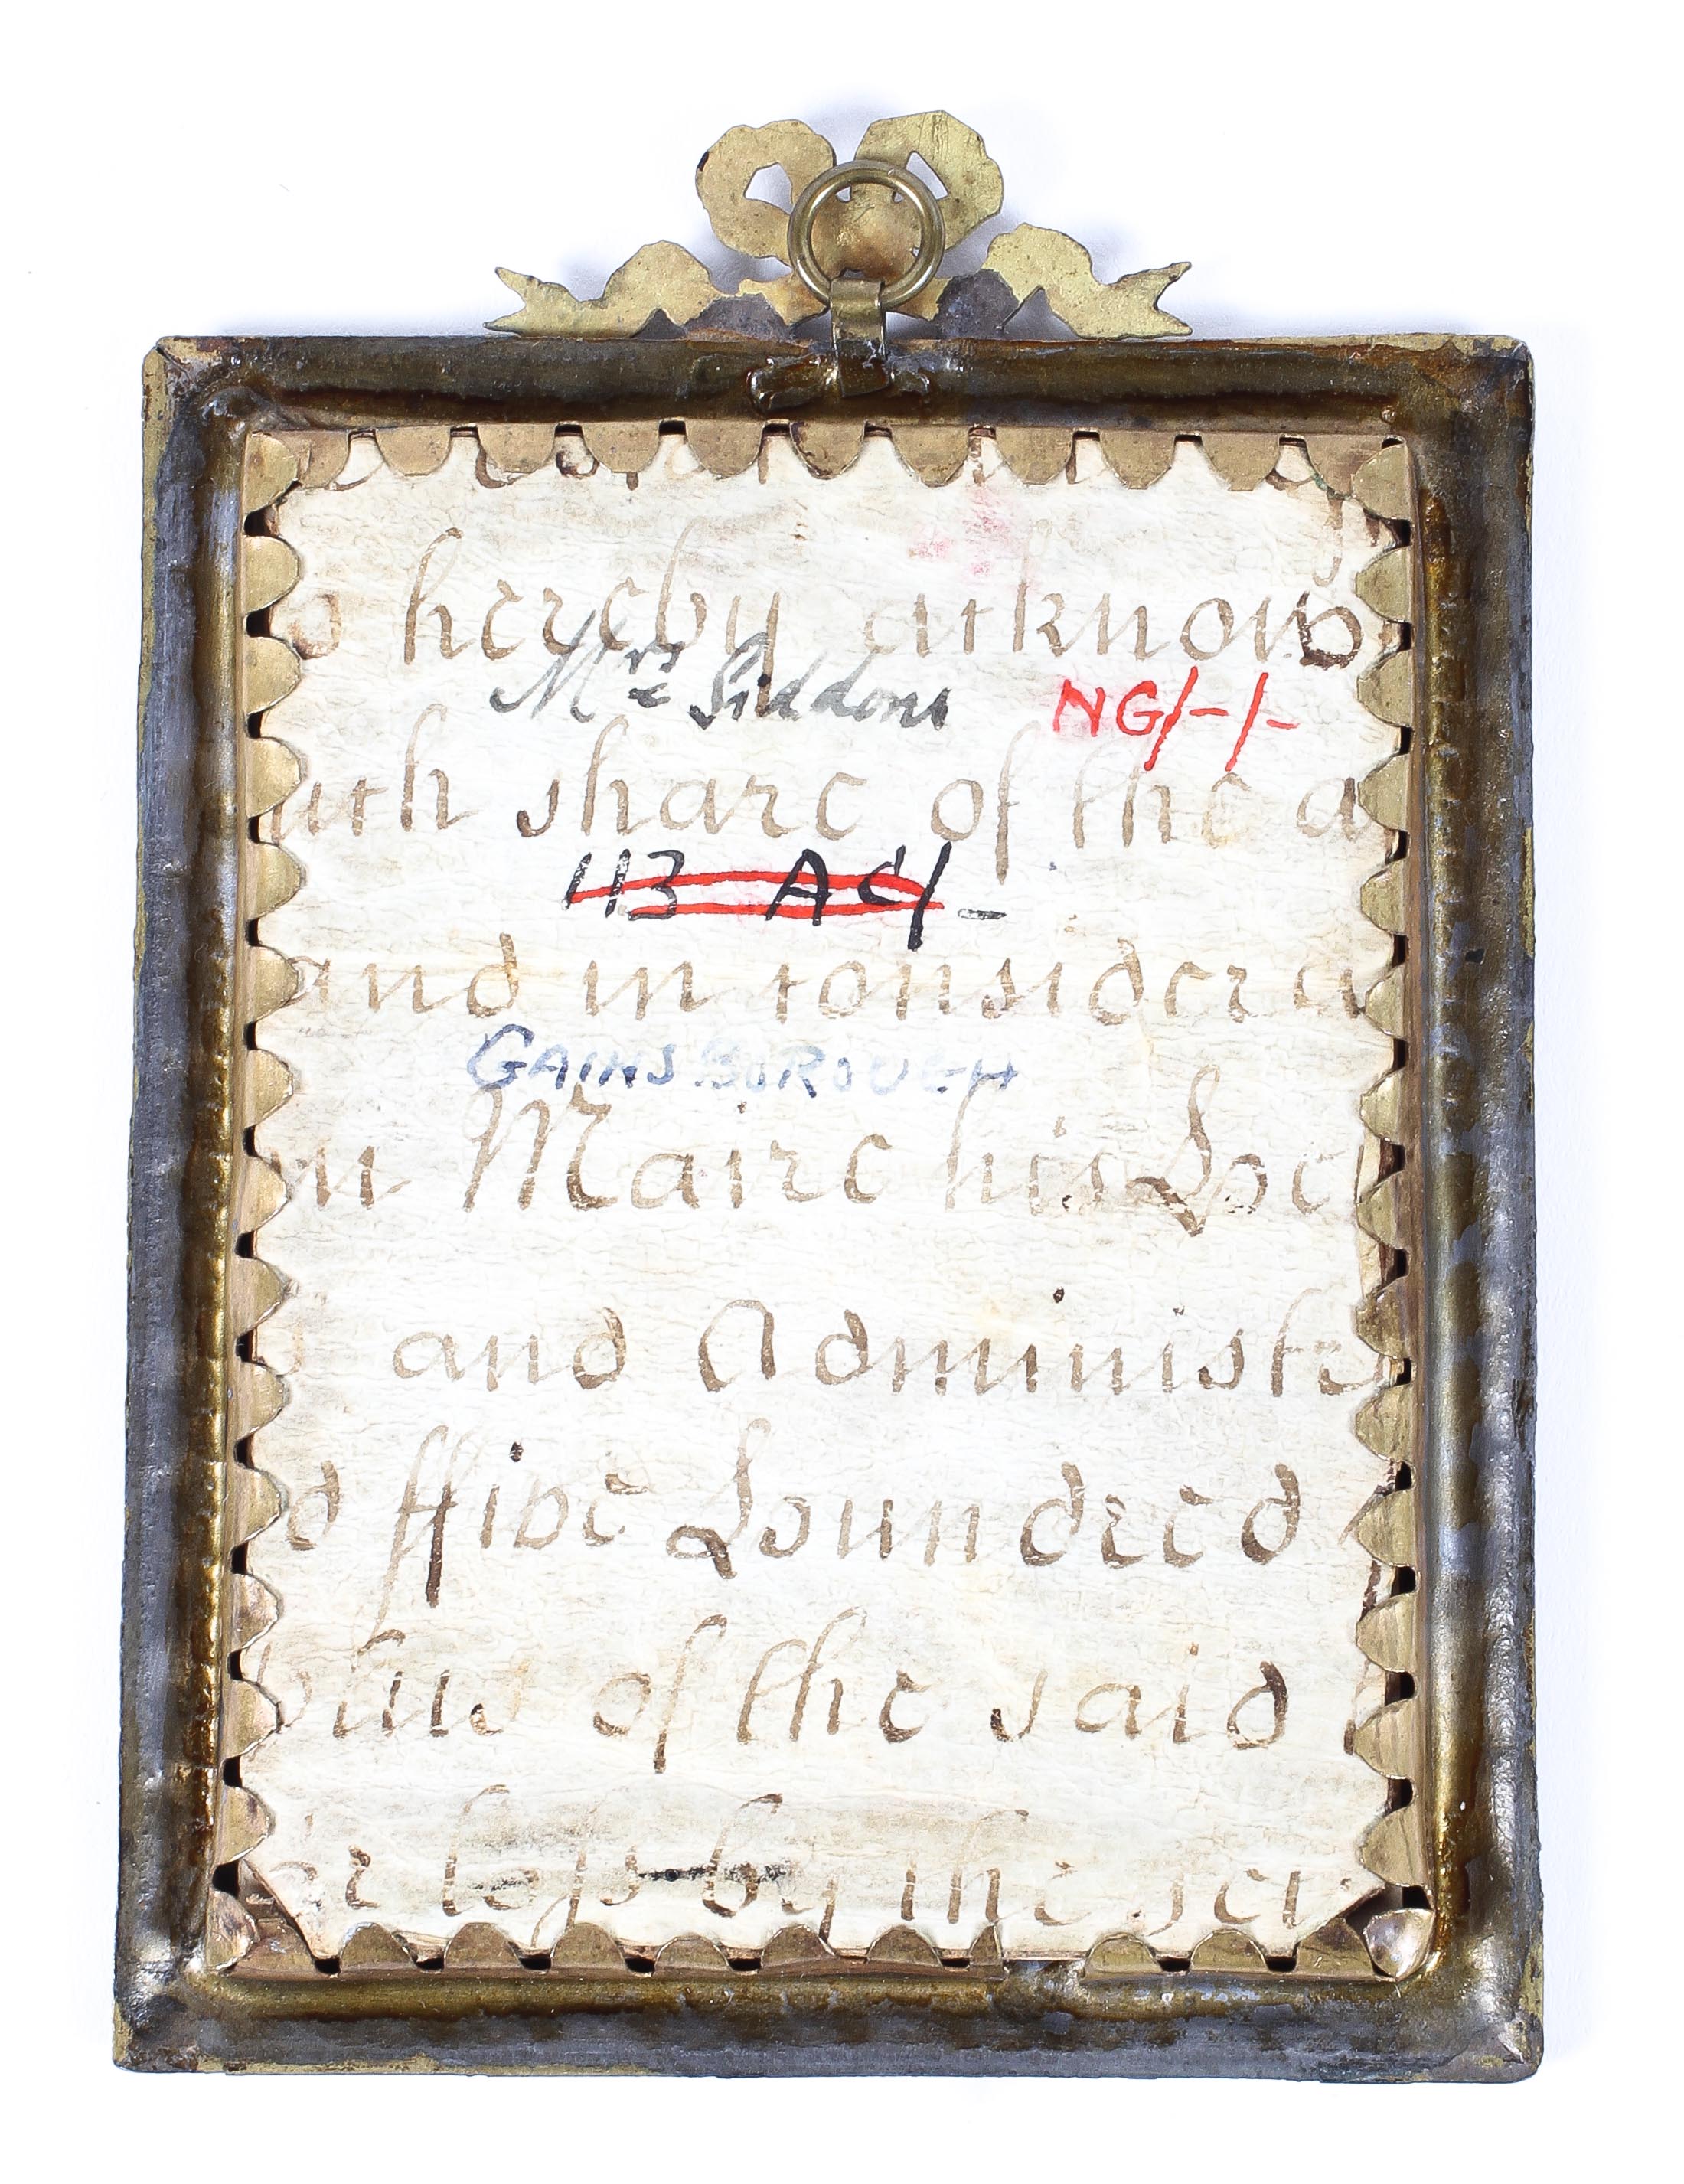 hereby acknow
Mrs Siddons NG/-/-
share of the a
113 AC/-
and in considera
GAINSBOROUGH
Maire his
and Administ
ffive Houndred
of the said
less by the